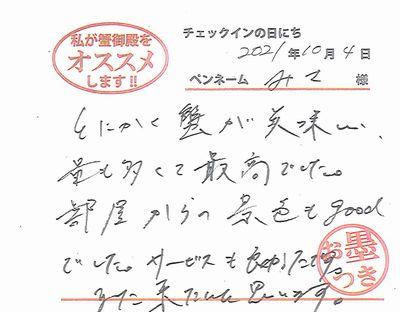 私が蟹御殿を
オススメ
します!!
チェックインの日にち
2021年10月4日
ペンネーム みて 様
とにかく蟹が美味しい、
量も多くて最高でした。
部屋からの景色もgood
でした。サービスも良かったです。
また来たいと思います。
お墨
つき